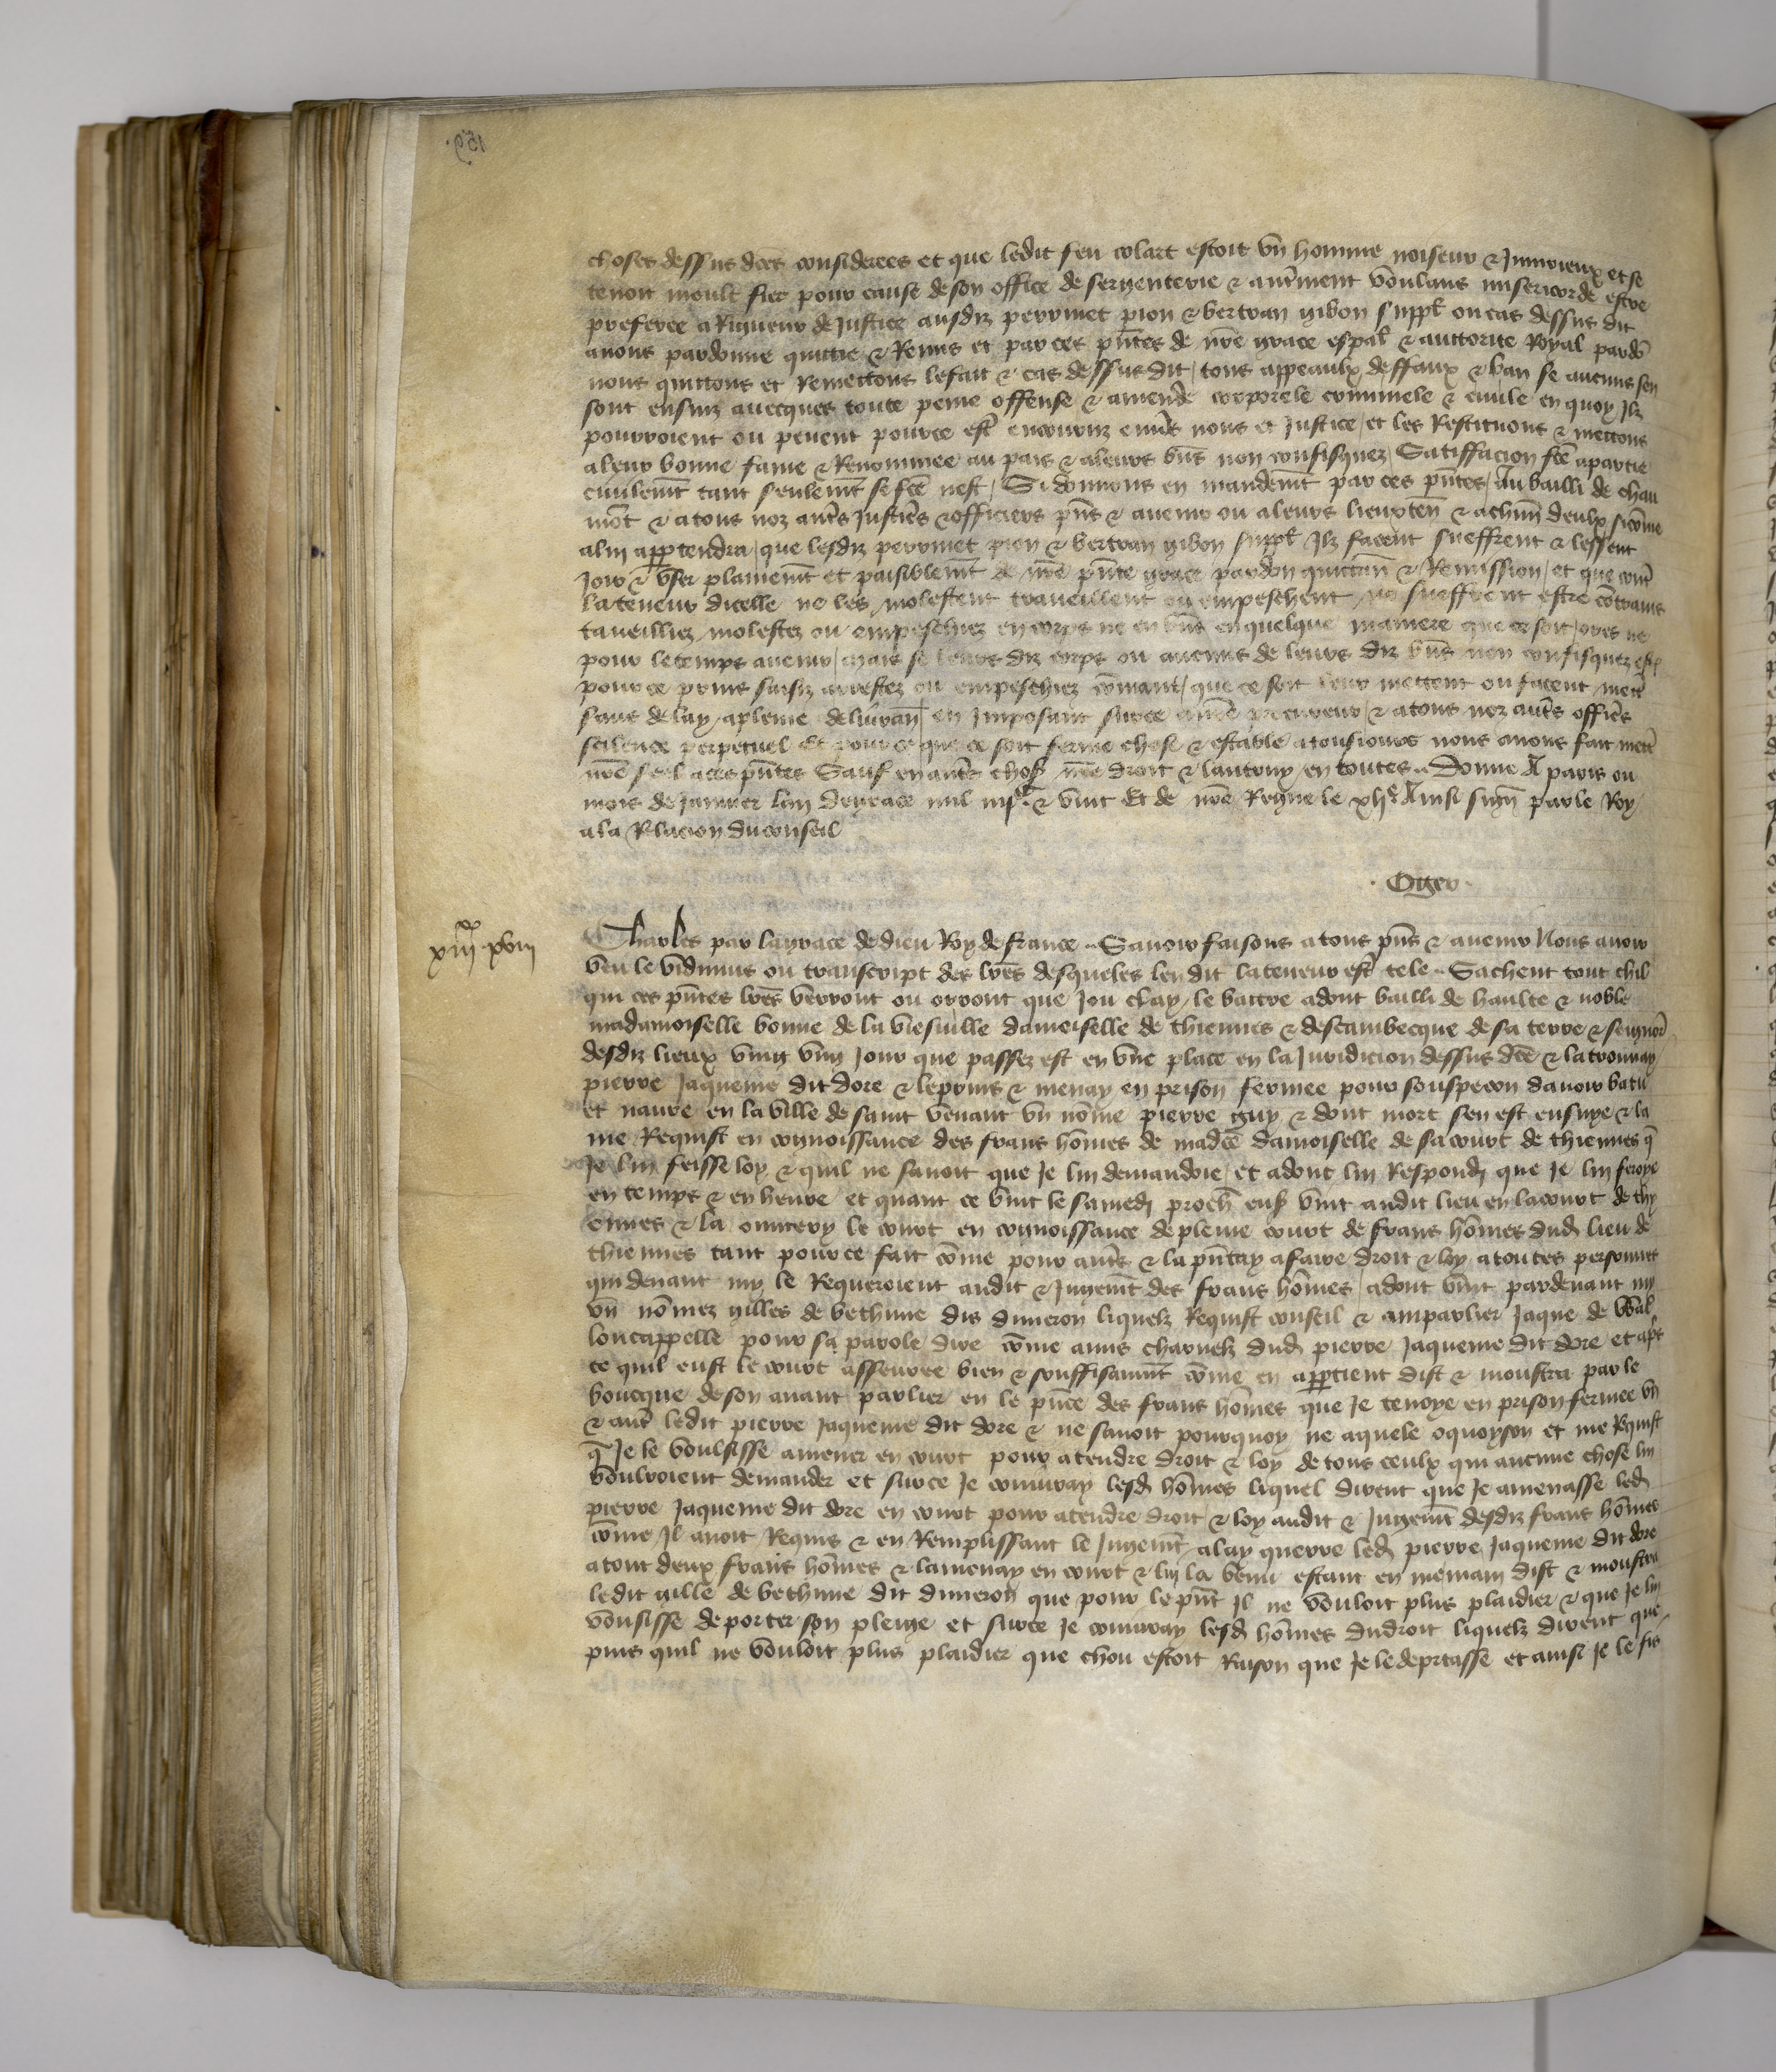 choses dessus dc̄es considerees et que ledit feu colart estoit vn̄ homme noiseux & Jniurieux et se
tenoit moult fier pour cause de son office de sergenterie & autrem̄ent voulans misericorde estre
preferee a Rigueur de Justice ausdiz perrinet pion & bertran gibon suppl̄ ou cas dessus dit
auons pardonne quittie & Remis et par ces pn̄tes de nr̄e grace esp̄al & auctorite Royal pardō
nons quittons et Remettons le fait & cas dessus dit / tous appeaulx deffaux & ban se aucuns sen
sont ensuiz auecques toute peine offense & amende corporele criminele & ciuile en quoy Jlz
pourroient ou peuent pource estr̄ encouruz enuers nous et Justice / et les Restituons & mettons
a leur bonne fame & Renommee au pais & a leurs bn̄s non confisquez / Satiffacion fc̄e a partie
ciuilem̄t tant seulem̄t se fc̄e nest / Si donnons en mandem̄t par ces pn̄tes / Au bailli de chau
mōt & a tous noz aut̄s Justic̄rs & officiers pn̄s & auenir ou a leurs lieuxten̄ & a chūn deulx sicōme
a lui app̄tendra / que lesdiz perrinet pion & bertran gibon suppl̄ Jlz facent sueffrent & lessent
Joir & vser plainem̄t et paisiblem̄t de nr̄e pn̄te grace pardon quittan̄ & Remission / et que contr̄
la teneur dicelle ne les molestent traueillent ou empeschent ne sueffrent estre cōtrains
taueilliez molestez ou empeschiez en corps ne en bn̄s en quelque maniere que ce soit / ores ne
pour le temps auenir / mais se leurs diz corps ou aucuns de leurs diz bn̄s non confisquez est̄
pour ce prins saisiz arrestez ou empeschiez cōmant / que ce soit leur mettent ou facent mettr̄
sans delay a pleine deliuran̄ / en Jmposant surce a nr̄e procureur / & a tous noz aut̄s offic̄rs
scilence perpetuel Et pour ce que ce soit ferme chose & estable a tousiours nous auons fait mettr̄
nr̄e seel a ces pn̄tes Sauf en aut̄s chos̄ nr̄e droit & lautruy en toutes .. Donne A paris ou
mois de Januier lan de grace mil iiiᶜ & vint Et de nr̄e Regne le xlᵉ. Ainsi sign̄ par le Roy
a la Relacion du conseil
. Oger .
xiiii xviii
Charles par la grace de dieu Roy de france .. Sauoir faisons a tous pn̄s & auenir Nous auoir
veu le vidimus ou transcript des lr̄es desqueles len dit la teneur estr̄ tele .. Sachent tout chil
qui ces pn̄tes lr̄es verront ou orront que Jou clay le battre adont bailli de haulte & noble
madamoiselle bonne de la viesuille damoiselle de thiennes & destambecque de sa terre & seignor̄
desdiz lieux ving vng Jour que passez est en vne place en la Juridicion dessus dc̄e & la trouuay
pierre Jaqueme dit dore & le prins & menay en prison fermee pour souspecon dauoir batu
et naure en la ville de saint venant vn̄ nōme pierre guy & dont mort sen est ensuye & la
me Requist en congnoissance des frans hōmes de madc̄e damoiselle de sa court de thiennes q̄
Je lui feisse loy & quil ne sauoit que Je lui demandoie / et adont lui Respondi que Je lui feroye
en temps & en heure et quant ce vint le samedi proch̄ ens̄ vint audit lieu en la court de thy
ennes & la ouuery le court en congnoissance de pleine court de frans hōmes dud̄ lieu de
thiennes tant pour ce fait cōme pour aut̄s & la pn̄tay a faire droit & loy a toutes personnes
qui deuant my le Requeroient audit & Jugem̄t des frans hōmes / adont vint pardeuant my
vn̄ nōmez gilles de bethune dis duneron liquelz Requist conseil & amparlier Jaque de Wal
loncappelle pour sa parole dire cōme amis charnelz dud̄ pierre Jaqueme dit dore et apr̄s
ce quil eust le court asseuree bien & souffisam̄nt cōme en app̄tient dist & moustra par le
boucque de son auant parlier en le pn̄ce des frans hōmes que Je tenoye en prison fermee vn̄
& aut̄ ledit pierre Jaqueme dit dore & ne sauoit pourquoy ne a quele oquoyson et me Requist
q̄ Je le voulsisse amener en court pour atendre droit & loy de tous ceulx qui aucune chose lui
vouldroient demander et surce Je coniuray lesd̄ hōmes liquel dirent que Je amenasse led̄
pierre Jaqueme dit dore en court pour atendre droit / & loy audit & Jugem̄t desdiz frans hōmes
cōme Jl auoit Requis & en Remplissant le Jugem̄t alay querre led̄ pierre Jaqueme dit dore
a tout deux frans hōmes & lamenay en court & lui la venu estant en me main dist & moustra
ledit gille de bethune dit duneron que pour le pn̄t Jl ne vouloit plus plaidier & que Je lui
vousisse deporter son pleige et surce Je coniuray lesd̄ hōmes dudroit liquelz dirent que
puis quil ne vouloit plus plaidier que chou estoit Raison que Je le deportasse et ainsi Je le fis